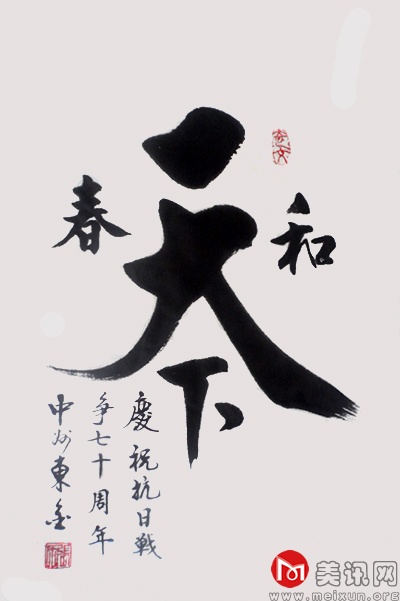 和
天
下
春
慶祝抗日戦
争七十周年
中州東
美讯网
www.meixun.org